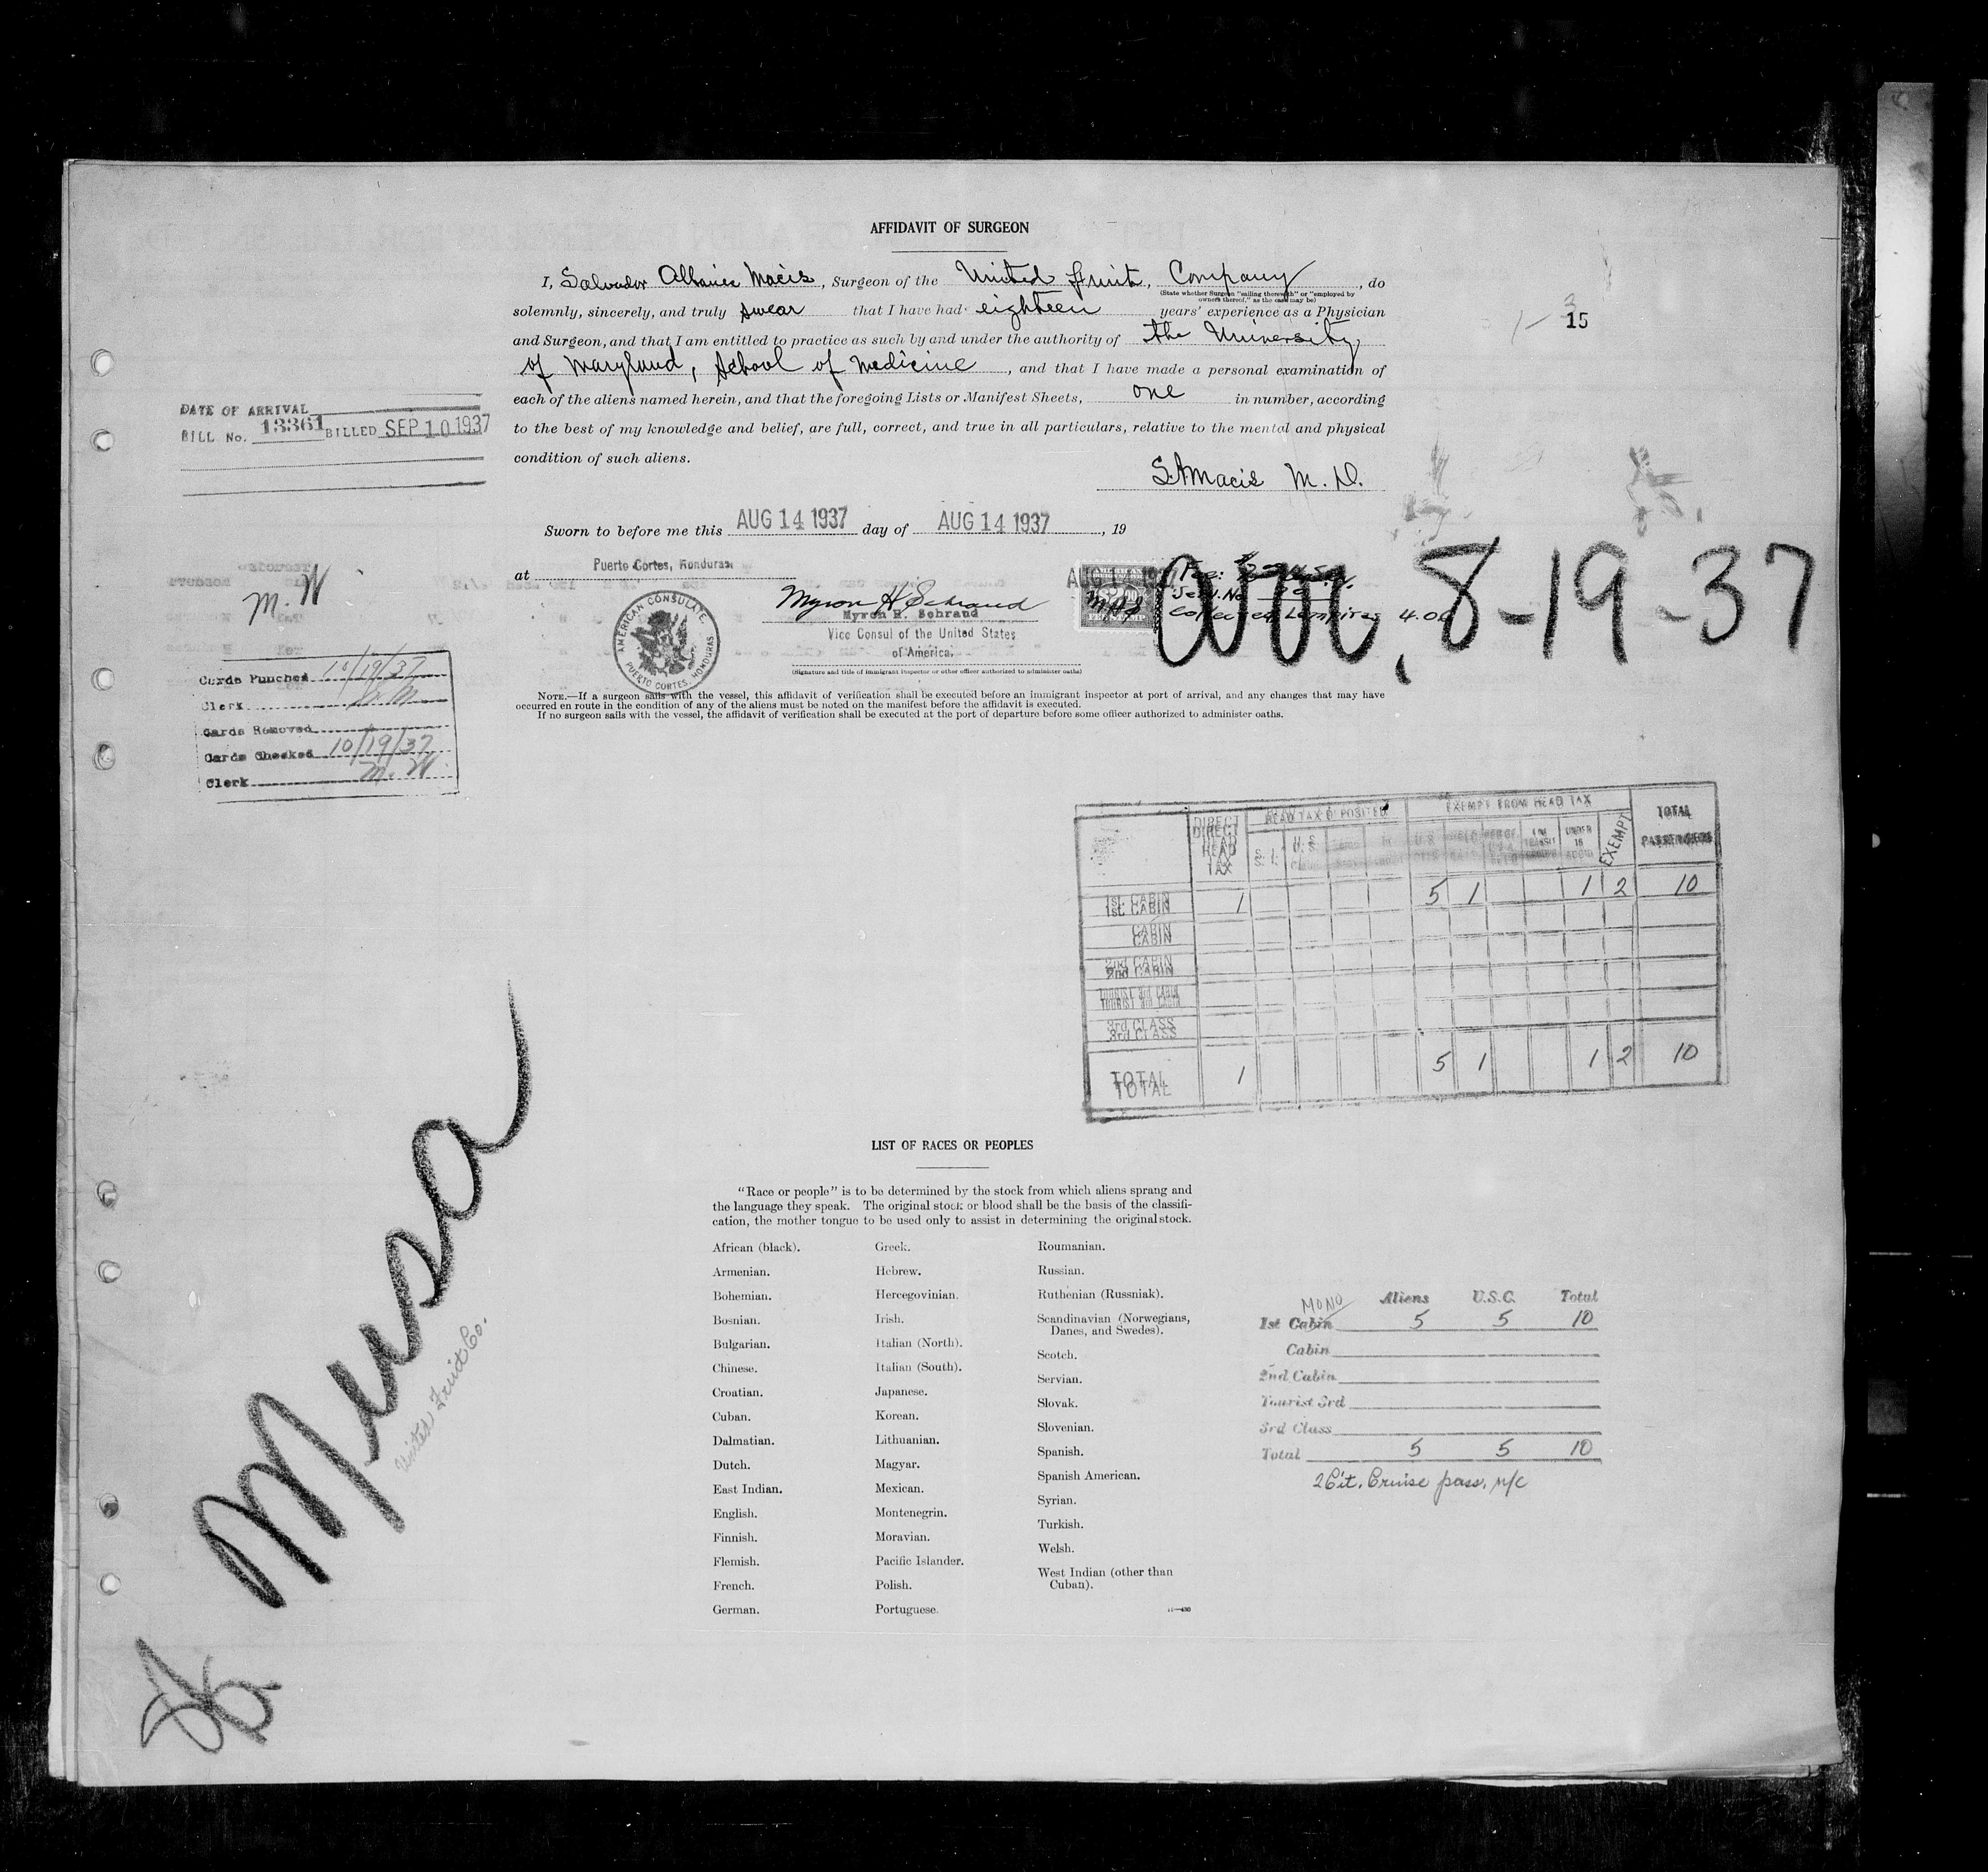 AFFIDAVIT OF SURGEON
I, Salvador Albanie Macis, Surgeon of the United Fruit, Company, do
(State whether Surgeon "sailing therewith" or "employed by owners thereof," as the case may be)
solemnly, sincerely, and truly swear that I have had eighteen years' experience as a Physician
and Surgeon, and that I am entitled to practice as such by and under the authority of the University
of Maryland, School of Medicine, and that I have made a personal examination of
each of the aliens named herein, and that the foregoing Lists or Manifest Sheets, one in number, according
to the best of my knowledge and belief, are full, correct, and true in all particulars, relative to the mental and physical
condition of such aliens.
3
15
DATE OF ARRIVAL
BILL No. 13361 BILLED SEP 10 1937
S.A Macis M. D.
Sworn to before me this AUG 14 1937 day of AUG 14 1937, 19
at Puerto Cortes, Honduras
Myron H Schrand
Myron H. Schrand
Vice Consul of the United States
of America.
(Signature and title of immigrant inspector or other officer authorized to administer oaths)
AMERICAN CONSULATE,
PUERTO CORTES, HONDURAS.
Collected Lempiras 4.00
8-19-37
M. W
Cards Punched 10/19/37
Clerk
Cards Removed
Cards Checked 10/19/37
Clerk M. W
NOTE.—If a surgeon sails with the vessel, this affidavit of verification shall be executed before an immigrant inspector at port of arrival, and any changes that may have
occurred en route in the condition of any of the aliens must be noted on the manifest before the affidavit is executed.
If no surgeon sails with the vessel, the affidavit of verification shall be executed at the port of departure before some officer authorized to administer oaths.
DIRECT HEAD TAX HEAD TAX DEPOSITED EXEMPT FROM HEAD TAX TOTAL PASSENGERS
EXEMPT
1st. CABIN 1 5 1 1 2 10
CABIN
2nd CABIN
TOURIST 3rd CABIN
3rd CLASS
TOTAL 1 5 1 1 2 10
Musa
United Fruit Co.
LIST OF RACES OR PEOPLES
"Race or people" is to be determined by the stock from which aliens sprang and
the language they speak. The original stock or blood shall be the basis of the classifi-
cation, the mother tongue to be used only to assist in determining the original stock.
African (black).
Armenian.
Bohemian.
Bosnian.
Bulgarian.
Chinese.
Croatian.
Cuban.
Dalmatian.
Dutch.
East Indian.
English.
Finnish.
Flemish.
French.
German.
Greek.
Hebrew.
Hercegovinian.
Irish.
Italian (North).
Italian (South).
Japanese.
Korean.
Lithuanian.
Magyar.
Mexican.
Montenegrin.
Moravian.
Pacific Islander.
Polish.
Portuguese.
Roumanian.
Russian.
Ruthenian (Russniak).
Scandinavian (Norwegians,
Danes, and Swedes).
Scotch.
Servian.
Slovak.
Slovenian.
Spanish.
Spanish American.
Syrian.
Turkish.
Welsh.
West Indian (other than
Cuban).
MONO Aliens U.S.C. Total
1st Cabin 5 5 10
Cabin
2nd Cabin
Tourist 3rd
3rd Class
Total 5 5 10
2 Cit. Cruise pass. n/c